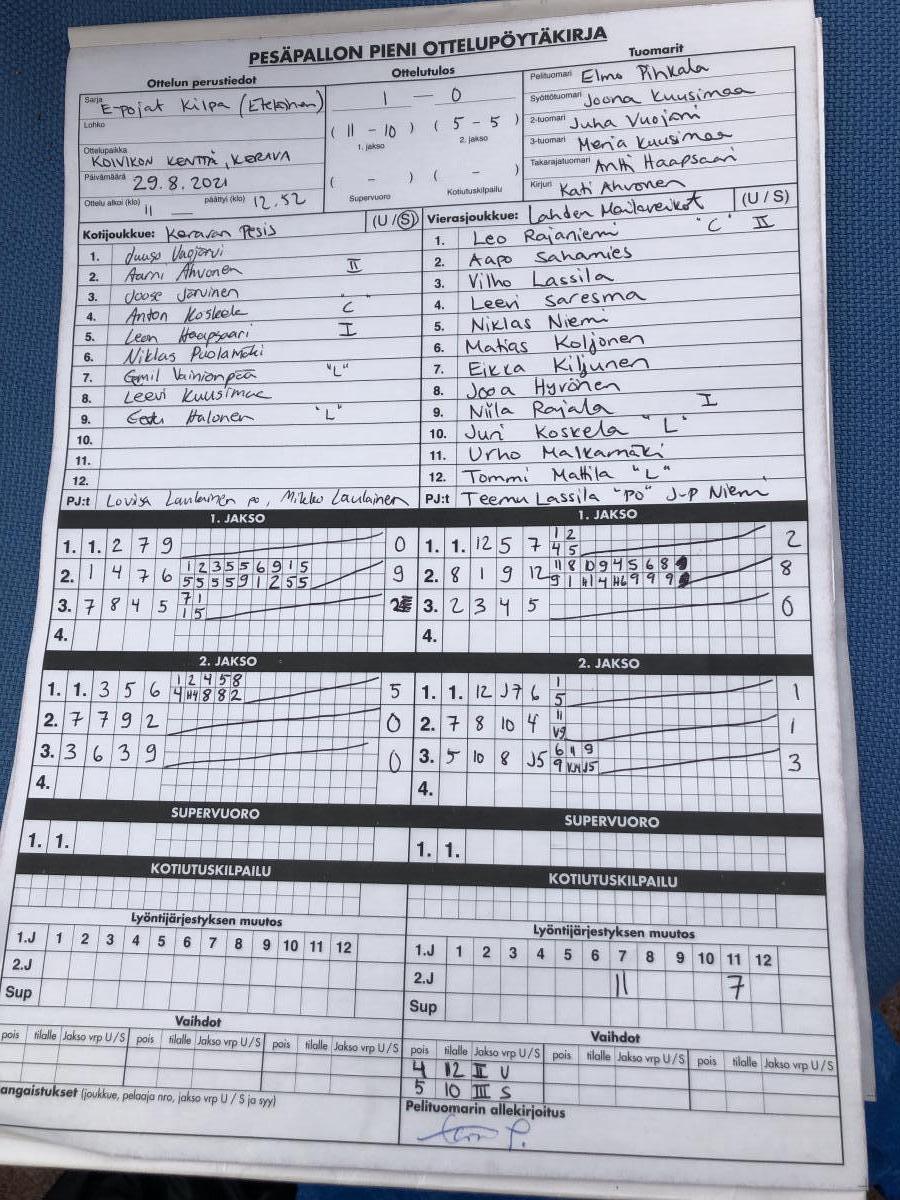 PESÄPALLON PIENI OTTELUPÖYTÄKIRJA
Ottelun perustiedot
Sarja E-pojat Kilpa (Eteläinen)
Lohko
Ottelupaikka KOIVIKON KENTTÄ, KERAVA
Päivämäärä 29.8.2021
Ottelu alkoi (klo) 11 — päättyi (klo) 12.52
Ottelutulos
1 — 0
( 11 - 10 ) ( 5 - 5 )
1. jakso 2. jakso
( - ) ( - )
Supervuoro Kotiutuskilpailu
Tuomarit
Pelituomari Elmo Pihkala
Syöttötuomari Joona Kuusimaa
2-tuomari Juha Vuojärvi
3-tuomari Merja Kuusimaa
Takarajatuomari Antti Haapsaari
Kirjuri Kati Ahvonen
Kotijoukkue: Keravan Pesis (U / S)
1. Juuso Vuojärvi
2. Aarni Ahvonen II
3. Joose Järvinen
4. Anton Koskela "C"
5. Leon Haapsaari I
6. Niklas Puolamäki
7. Eemil Vainionpää "L"
8. Leevi Kuusimaa
9. Eetu Halonen "L"
10.
11.
12.
PJ:t Lovisa Laulainen po, Mikko Laulainen
Vierasjoukkue: Lahden Mailaveikot (U / S)
1. Leo Rajaniemi "C" II
2. Aapo Sahamies
3. Vilho Lassila
4. Leevi Saresma
5. Niklas Niemi
6. Matias Koljonen
7. Eikka Kiljunen
8. Jooa Hyvönen
9. Niila Rajala I
10. Juri Koskela "L"
11. Urho Malkamäki
12. Tommi Mattila "L"
PJ:t Teemu Lassila "PO" J-P Niemi
1. JAKSO
1. 1. 2 7 9 0
2. 1 4 7 6 1 2 3 5 5 6 9 1 5 9
5 5 5 5 9 1 2 5 5
3. 7 8 4 5 7 1 2
1 5
4.
1. JAKSO
1. 1. 12 5 7 1 2 2
4 5
2. 8 1 9 12 11 8 10 9 4 5 6 8 8
3. 2 3 4 5 0
4.
2. JAKSO
1. 1. 3 5 6 1 2 4 5 8 5
4 H4 8 8 2
2. 7 7 9 2 0
3. 3 6 3 9 0
4.
2. JAKSO
1. 1. 12 J7 6 1 1
5
2. 7 8 10 4 11 1
V9
3. 5 10 8 J5 6 11 9 3
4.
SUPERVUORO
1. 1.
SUPERVUORO
1. 1.
KOTIUTUSKILPAILU
KOTIUTUSKILPAILU
Lyöntijärjestyksen muutos
1.J 1 2 3 4 5 6 7 8 9 10 11 12
2.J
Sup
Lyöntijärjestyksen muutos
1.J 1 2 3 4 5 6 7 8 9 10 11 12
2.J 11 7
Sup
Vaihdot
pois tilalle Jakso vrp U / S pois tilalle Jakso vrp U / S pois tilalle Jakso vrp U / S
Vaihdot
pois tilalle Jakso vrp U / S pois tilalle Jakso vrp U / S pois tilalle Jakso vrp U / S
4 12 II U
5 10 III S
angaistukset (joukkue, pelaaja nro, jakso vrp U / S ja syy)
Pelituomarin allekirjoitus